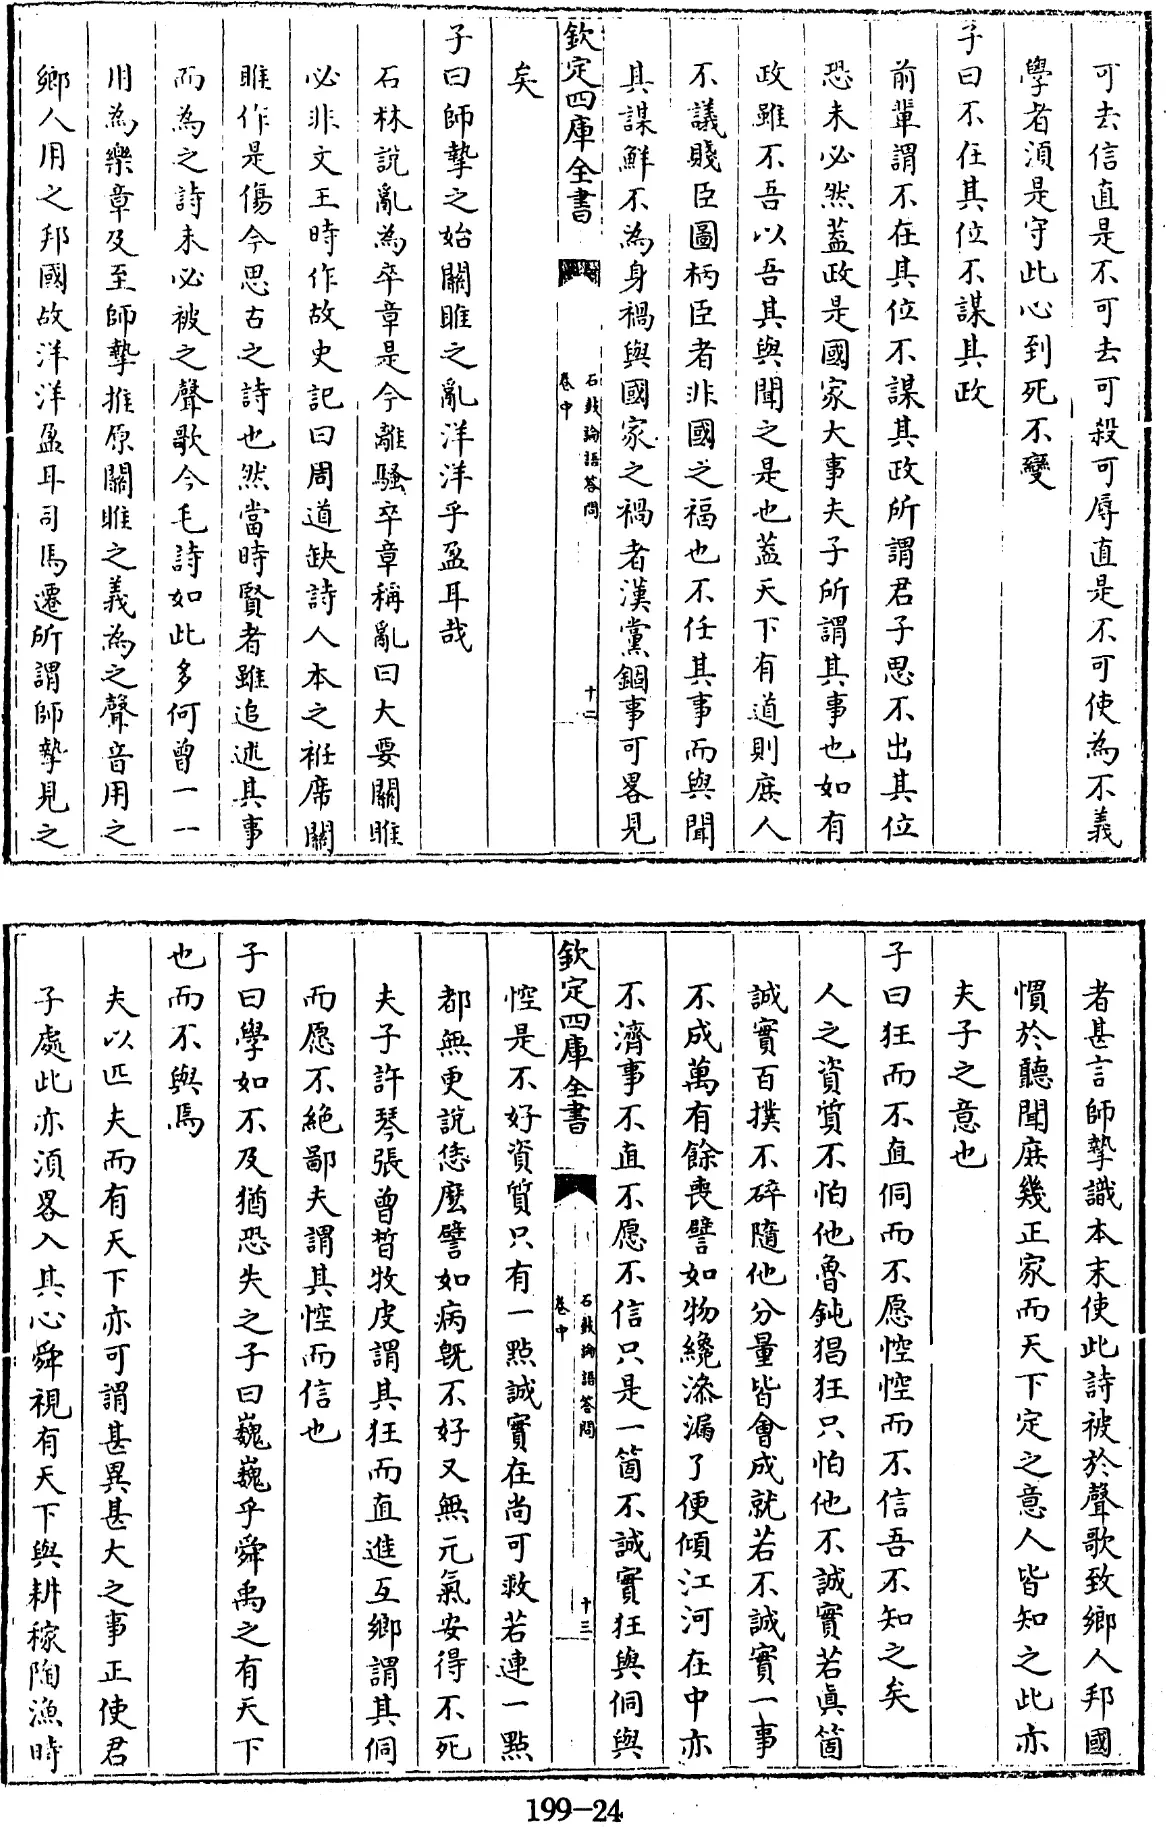 可去信直是不可去可殺可辱直是不可使為不義
學者須是守此心到死不變
子曰不在其位不謀其政
前輩謂不在其位不謀其政所謂君子思不出其位
恐未必然蓋政是國家大事夫子所謂其事也如有
政雖不吾以吾其與聞之是也蓋天下有道則庶人
不議賤臣圖柄臣者非國之福也不任其事而與聞
其謀鮮不為身禍與國家之禍者漢黨錮事可畧見
欽定四庫全書
石鼓論語答問
卷中
十二
矣
子曰師摯之始關雎之亂洋洋乎盈耳哉
石林說亂為卒章是今離騷卒章稱亂曰大要關雎
必非文王時作故史記曰周道缺詩人本之袵席關
雎作是傷今思古之詩也然當時賢者雖追述其事
而為之詩未必被之聲歌今毛詩如此多何曾一一
用為樂章及至師摯推原關雎之義為之聲音用之
鄉人用之邦國故洋洋盈耳司馬遷所謂師摯見之
者甚言師摯識本末使此詩被於聲歌致鄉人邦國
慣於聽聞庶幾正家而天下定之意人皆知之此亦
夫子之意也
子曰狂而不直侗而不愿悾悾而不信吾不知之矣
人之資質不怕他魯鈍猖狂只怕他不誠實若眞箇
誠實百撲不碎隨他分量皆會成就若不誠實一事
不成萬有餘喪譬如物纔滲漏了便傾江河在中亦
不濟事不直不愿不信只是一箇不誠實狂與侗與
欽定四庫全書
石鼓論語答問
卷中
十三
悾是不好資質只有一點誠實在尚可救若連一點
都無更說恁麽譬如病旣不好又無元氣安得不死
夫子許琴張曾晳牧皮謂其狂而直進互鄉謂其侗
而愿不絶鄙夫謂其悾而信也
子曰學如不及猶恐失之子曰巍巍乎舜禹之有天下
也而不與焉
夫以匹夫而有天下亦可謂甚異甚大之事正使君
子處此亦須畧入其心舜視有天下與耕稼陶漁時
199-24